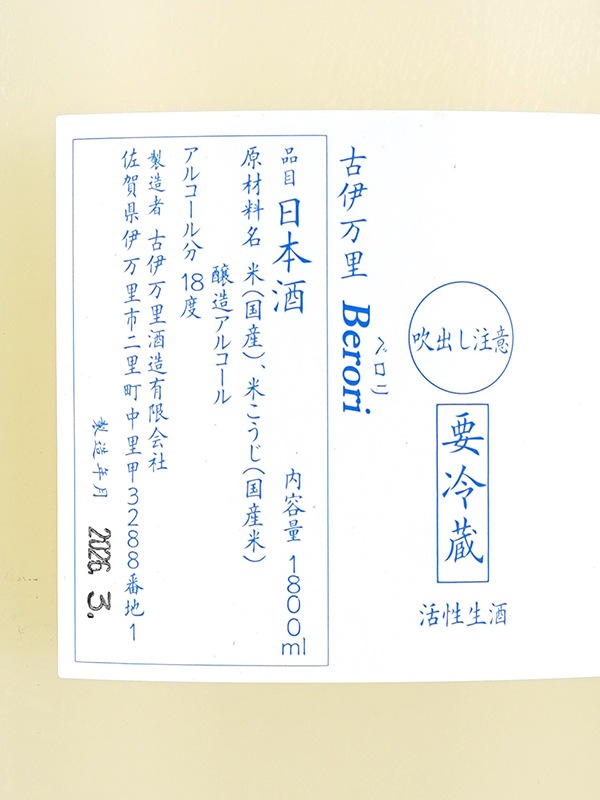 吹出し注意
要冷蔵
活性生酒
古伊万里 Berori
ベロリ
品目 日本酒 内容量 1800ml
原材料名 米(国産)、米こうじ(国産米)
醸造アルコール
アルコール分 18度
製造者 古伊万里酒造有限会社
佐賀県伊万里市二里町中里甲3288番地1
製造年月 2026. 3.